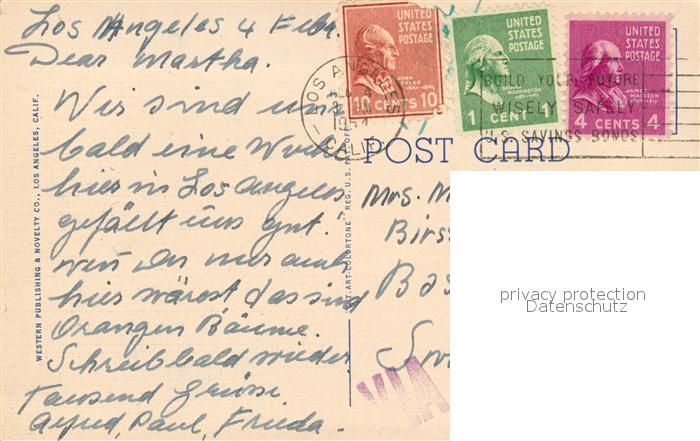 Los Angeles 4 Febr.
Dear Martha.
Wir sind nun
bald eine Woche
hier in Los Angeles
gefällt uns gut.
wen Du nur auch
hier wärest das sind
Orangen Bäume.
Schreib bald wieder
Tausend Grüsse
Alfred, Paul, Frieda.
WESTERN PUBLISHING & NOVELTY CO., LOS ANGELES, CALIF.
"ART-COLORTONE" REG. U.S. PAT. OFF.
UNITED
STATES
POSTAGE
JOHN
TYLER
10 CENTS 10
UNITED
STATES
POSTAGE
WASHINGTON
1 CENT 1
UNITED
STATES
POSTAGE
JAMES
MADISON
4 CENTS 4
LOS ANGELES
1954
CALIF.
BUILD YOUR FUTURE
WISELY SAFELY
U.S. SAVINGS BONDS
POST CARD
Mrs. M
Birs
Bas
Sw
VIA
privacy protection
Datenschutz